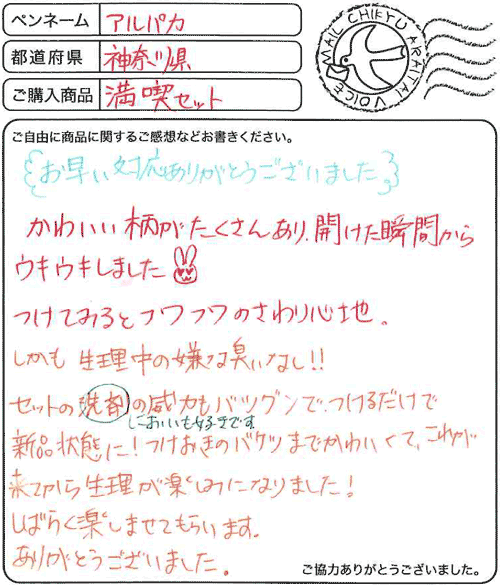 ペンネーム アルパカ
都道府県 神奈川県
ご購入商品 満喫セット
MAIL CHIKYU ARAITAI VOICE
ご自由に商品に関するご感想などお書きください。
お早い対応ありがとうございました。
かわいい柄がたくさんあり、開けた瞬間から
ウキウキしました
つけてみるとフワフワのさわり心地。
しかも生理中の嫌な臭いなし!!
セットの洗剤の威力もバツグンで、つけるだけで
においも好きです
新品状態に!つけおきのバケツまでかわいくて、これが
来てから生理が楽しみになりました!
しばらく楽しませてもらいます。
ありがとうございました。
ご協力ありがとうございました。